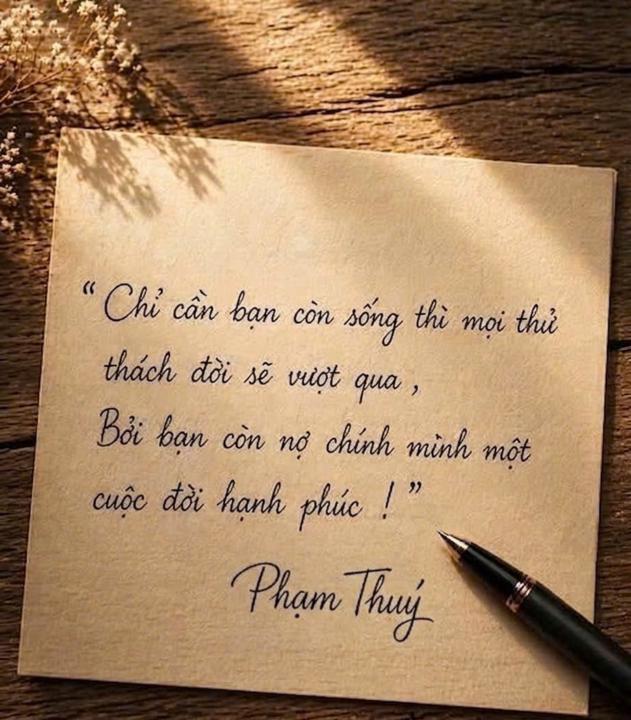 “ Chỉ cần bạn còn sống thì mọi thử
thách đời sẽ vượt qua ,
Bởi bạn còn nợ chính mình một
cuộc đời hạnh phúc ! ”
Phạm Thuý